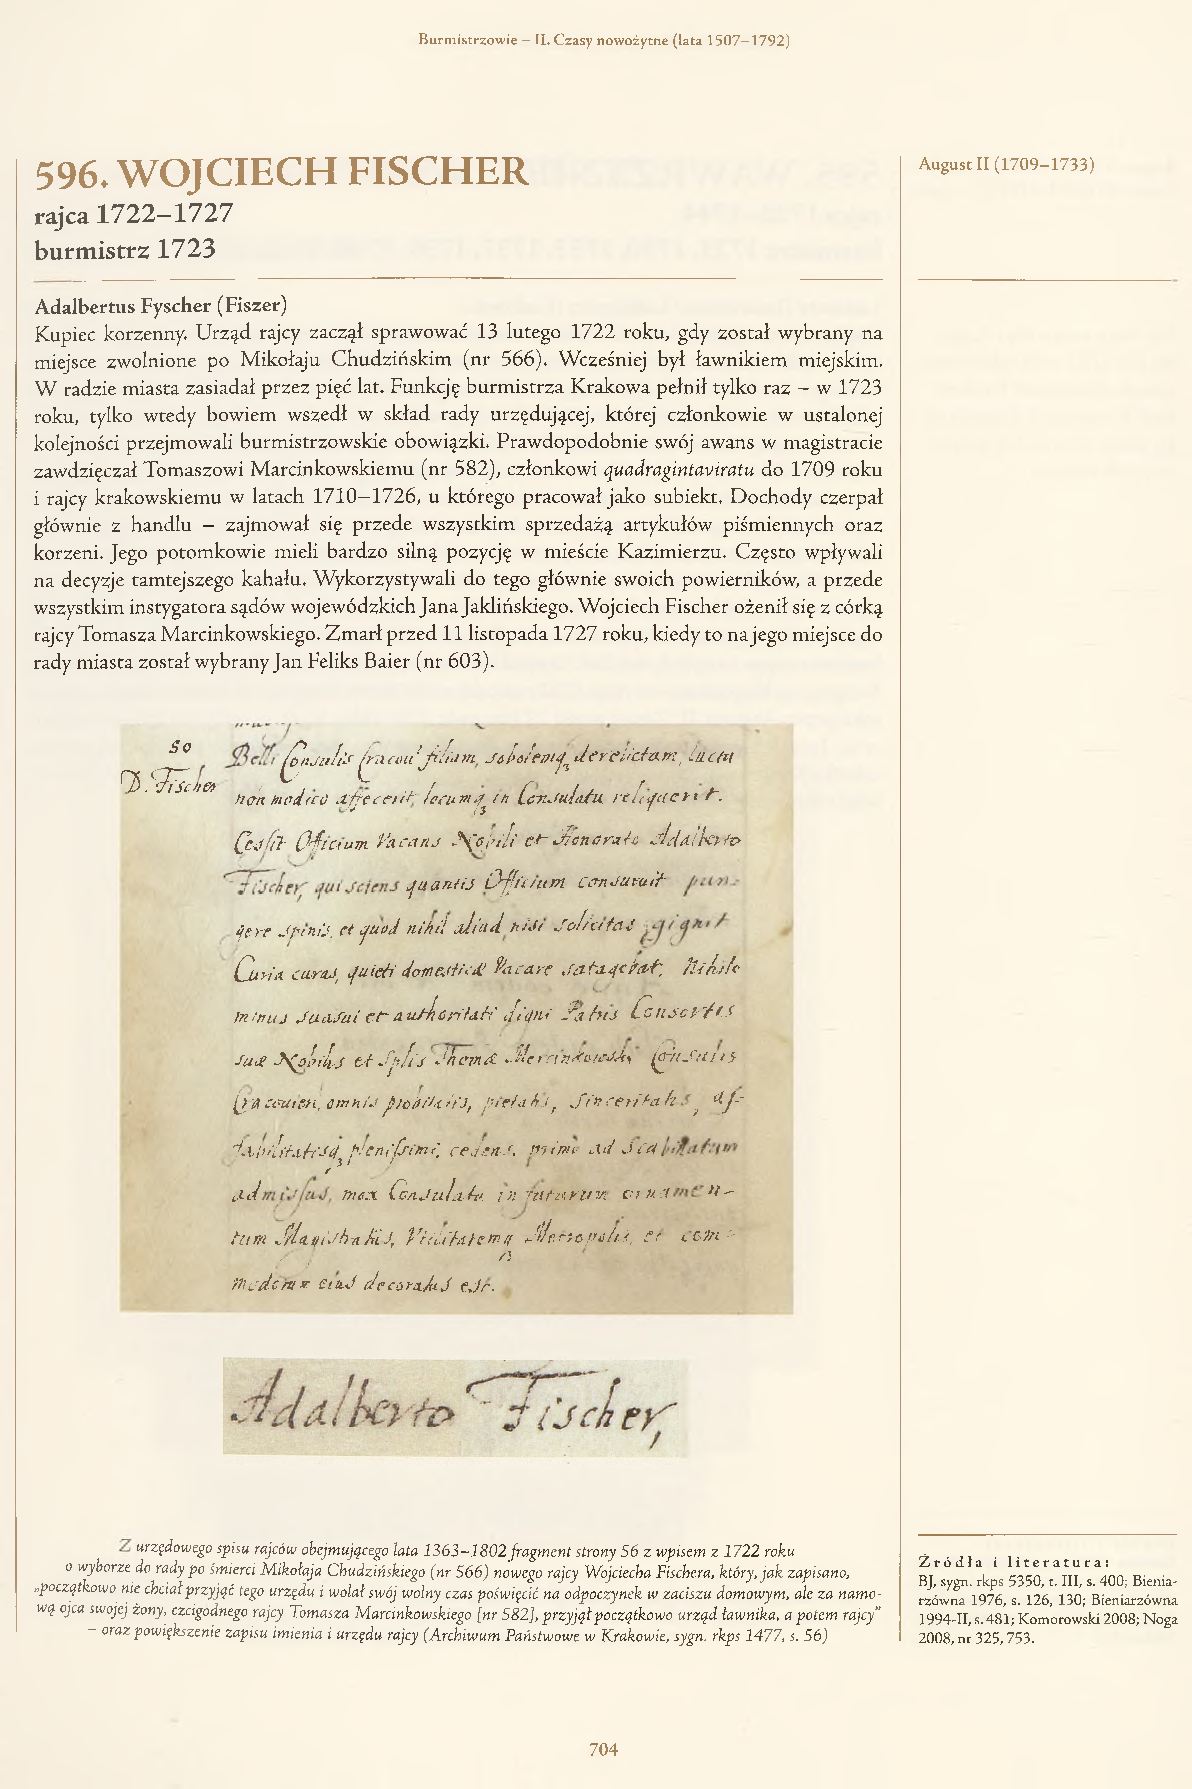 Burmistrzowie – II. Czasy nowożytne (lata 1507–1792)
596. WOJCIECH FISCHER
rajca 1722–1727
burmistrz 1723
August II (1709–1733)
Adalbertus Fyscher (Fiszer)
Kupiec korzenny. Urząd rajcy zaczął sprawować 13 lutego 1722 roku, gdy został wybrany na
miejsce zwolnione po Mikołaju Chudzińskim (nr 566). Wcześniej był ławnikiem miejskim.
W radzie miasta zasiadał przez pięć lat. Funkcję burmistrza Krakowa pełnił tylko raz – w 1723
roku, tylko wtedy bowiem wszedł w skład rady urzędującej, której członkowie w ustalonej
kolejności przejmowali burmistrzowskie obowiązki. Prawdopodobnie swój awans w magistracie
zawdzięczał Tomaszowi Marcinkowskiemu (nr 582), członkowi quadragintaviratu do 1709 roku
i rajcy krakowskiemu w latach 1710–1726, u którego pracował jako subiekt. Dochody czerpał
głównie z handlu – zajmował się przede wszystkim sprzedażą artykułów piśmiennych oraz
korzeni. Jego potomkowie mieli bardzo silną pozycję w mieście Kazimierzu. Często wpływali
na decyzje tamtejszego kahału. Wykorzystywali do tego głównie swoich powierników, a przede
wszystkim instygatora sądów wojewódzkich Jana Jaklińskiego. Wojciech Fischer ożenił się z córką
rajcy Tomasza Marcinkowskiego. Zmarł przed 11 listopada 1727 roku, kiedy to na jego miejsce do
rady miasta został wybrany Jan Feliks Baier (nr 603).
50
D. Fischer
Consulis filiam, sobolemq3 derelictam, luctu
non modico affecerit, locumq3 in Consulatu reliquerit.
Cessit Officium Vacans Nobili et Honorato Adalberto
Fischer, qui sciens quantis Officium consuevit pun-
gere spinis, et quod nihil aliud nisi solicitas gignit
Curia curas, quieti domesticæ Vacare satagebat, Nihilo
minus suasui et authoritati digni Patris Consortis
suæ Nobilis et Splis Thomæ Mercinkowski Consulis
Cracovien, omnis probitatis, pietatis, Sinceritatis, af-
fabilitatisq3 plenissimi, cedens, primo ad Scabinatum
admissus, mox Consulatu in futurum ornamen-
tum Magistratus, Vtilitatemq3 Metropolis, et com-
modorum eius decoratus est.
Adalberto Fischer,
Z urzędowego spisu rajców obejmującego lata 1363–1802 fragment strony 56 z wpisem z 1722 roku
o wyborze do rady po śmierci Mikołaja Chudzińskiego (nr 566) nowego rajcy Wojciecha Fischera, który, jak zapisano,
„początkowo nie chciał przyjąć tego urzędu i wolał swój wolny czas poświęcić na odpoczynek w zaciszu domowym, ale za namo-
wą ojca swojej żony, czcigodnego rajcy Tomasza Marcinkowskiego [nr 582], przyjął początkowo urząd ławnika, a potem rajcy”
– oraz powiększenie zapisu imienia i urzędu rajcy (Archiwum Państwowe w Krakowie, sygn. rkps 1477, s. 56)
Źródła i literatura:
BJ, sygn. rkps 5350, t. III, s. 400; Bienia-
rzówna 1976, s. 126, 130; Bieniarzówna
1994-II, s. 481; Komorowski 2008; Noga
2008, nr 325, 753.
704